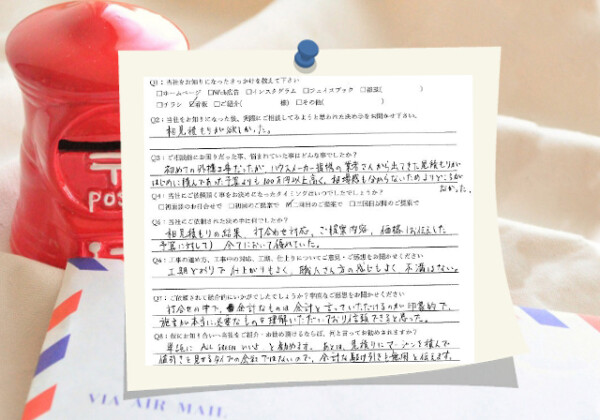 Q1：当社をお知りになったきっかけを教えて下さい
□ホームページ □Web広告 □インスタグラム □フェイスブック □雑誌( )
□チラシ ☑看板 □ご紹介( 様) □その他( )
Q2：当社をお知りになった後、実際にご相談してみようと思われた決め手をお聞かせ下さい。
相見積もりが欲しかった。
Q3：ご相談前にお困りだった事、悩まれていた事はどんな事でしたか？
初めての外構工事だったが、ハウスメーカー提携の業者さんから出てきた見積もりが
はじめに積んであった予算よりも100万円以上高く、相場感も分からないためよりどころが
なかった。
Q4：当社にご依頼頂く事をお決めになったタイミングはいつでしたでしょうか？
□初回のお打合せで □初回のご提案で ☑二回目のご提案で □三回目以降のご提案で
Q5：当社にご依頼された決め手は何でしたか？
相見積もりの結果、打合わせ対応、ご提案内容、価格(お伝えした
予算に対して) 全てにおいて優れていた。
Q6：工事の進め方、工事中の対応、工期、仕上りについてご意見・ご感想をお聞かせください
工期どおりで仕上がりもよく、職人さん方の感じもよく不満はない。
Q7：ご依頼されて総合的にいかがでしたでしょうか？率直なご感想をお聞かせください
打合せの中で、余計なものは余計と言っていただけるのが印象的で、
施主が本当に必要なものを理解いただいており信頼できると思った。
Q8：仮にお知り合いへ当社をご紹介・お勧め頂けるならば、何と言ってお勧めされますか？
単純に ALL GREEN いいよ と勧めます。あとは、見積りにマージンを積んで
値引きを見せるタイプの会社ではないので、余計な駆け引きも無用と伝えます。
POS
VIA AIR MAIL